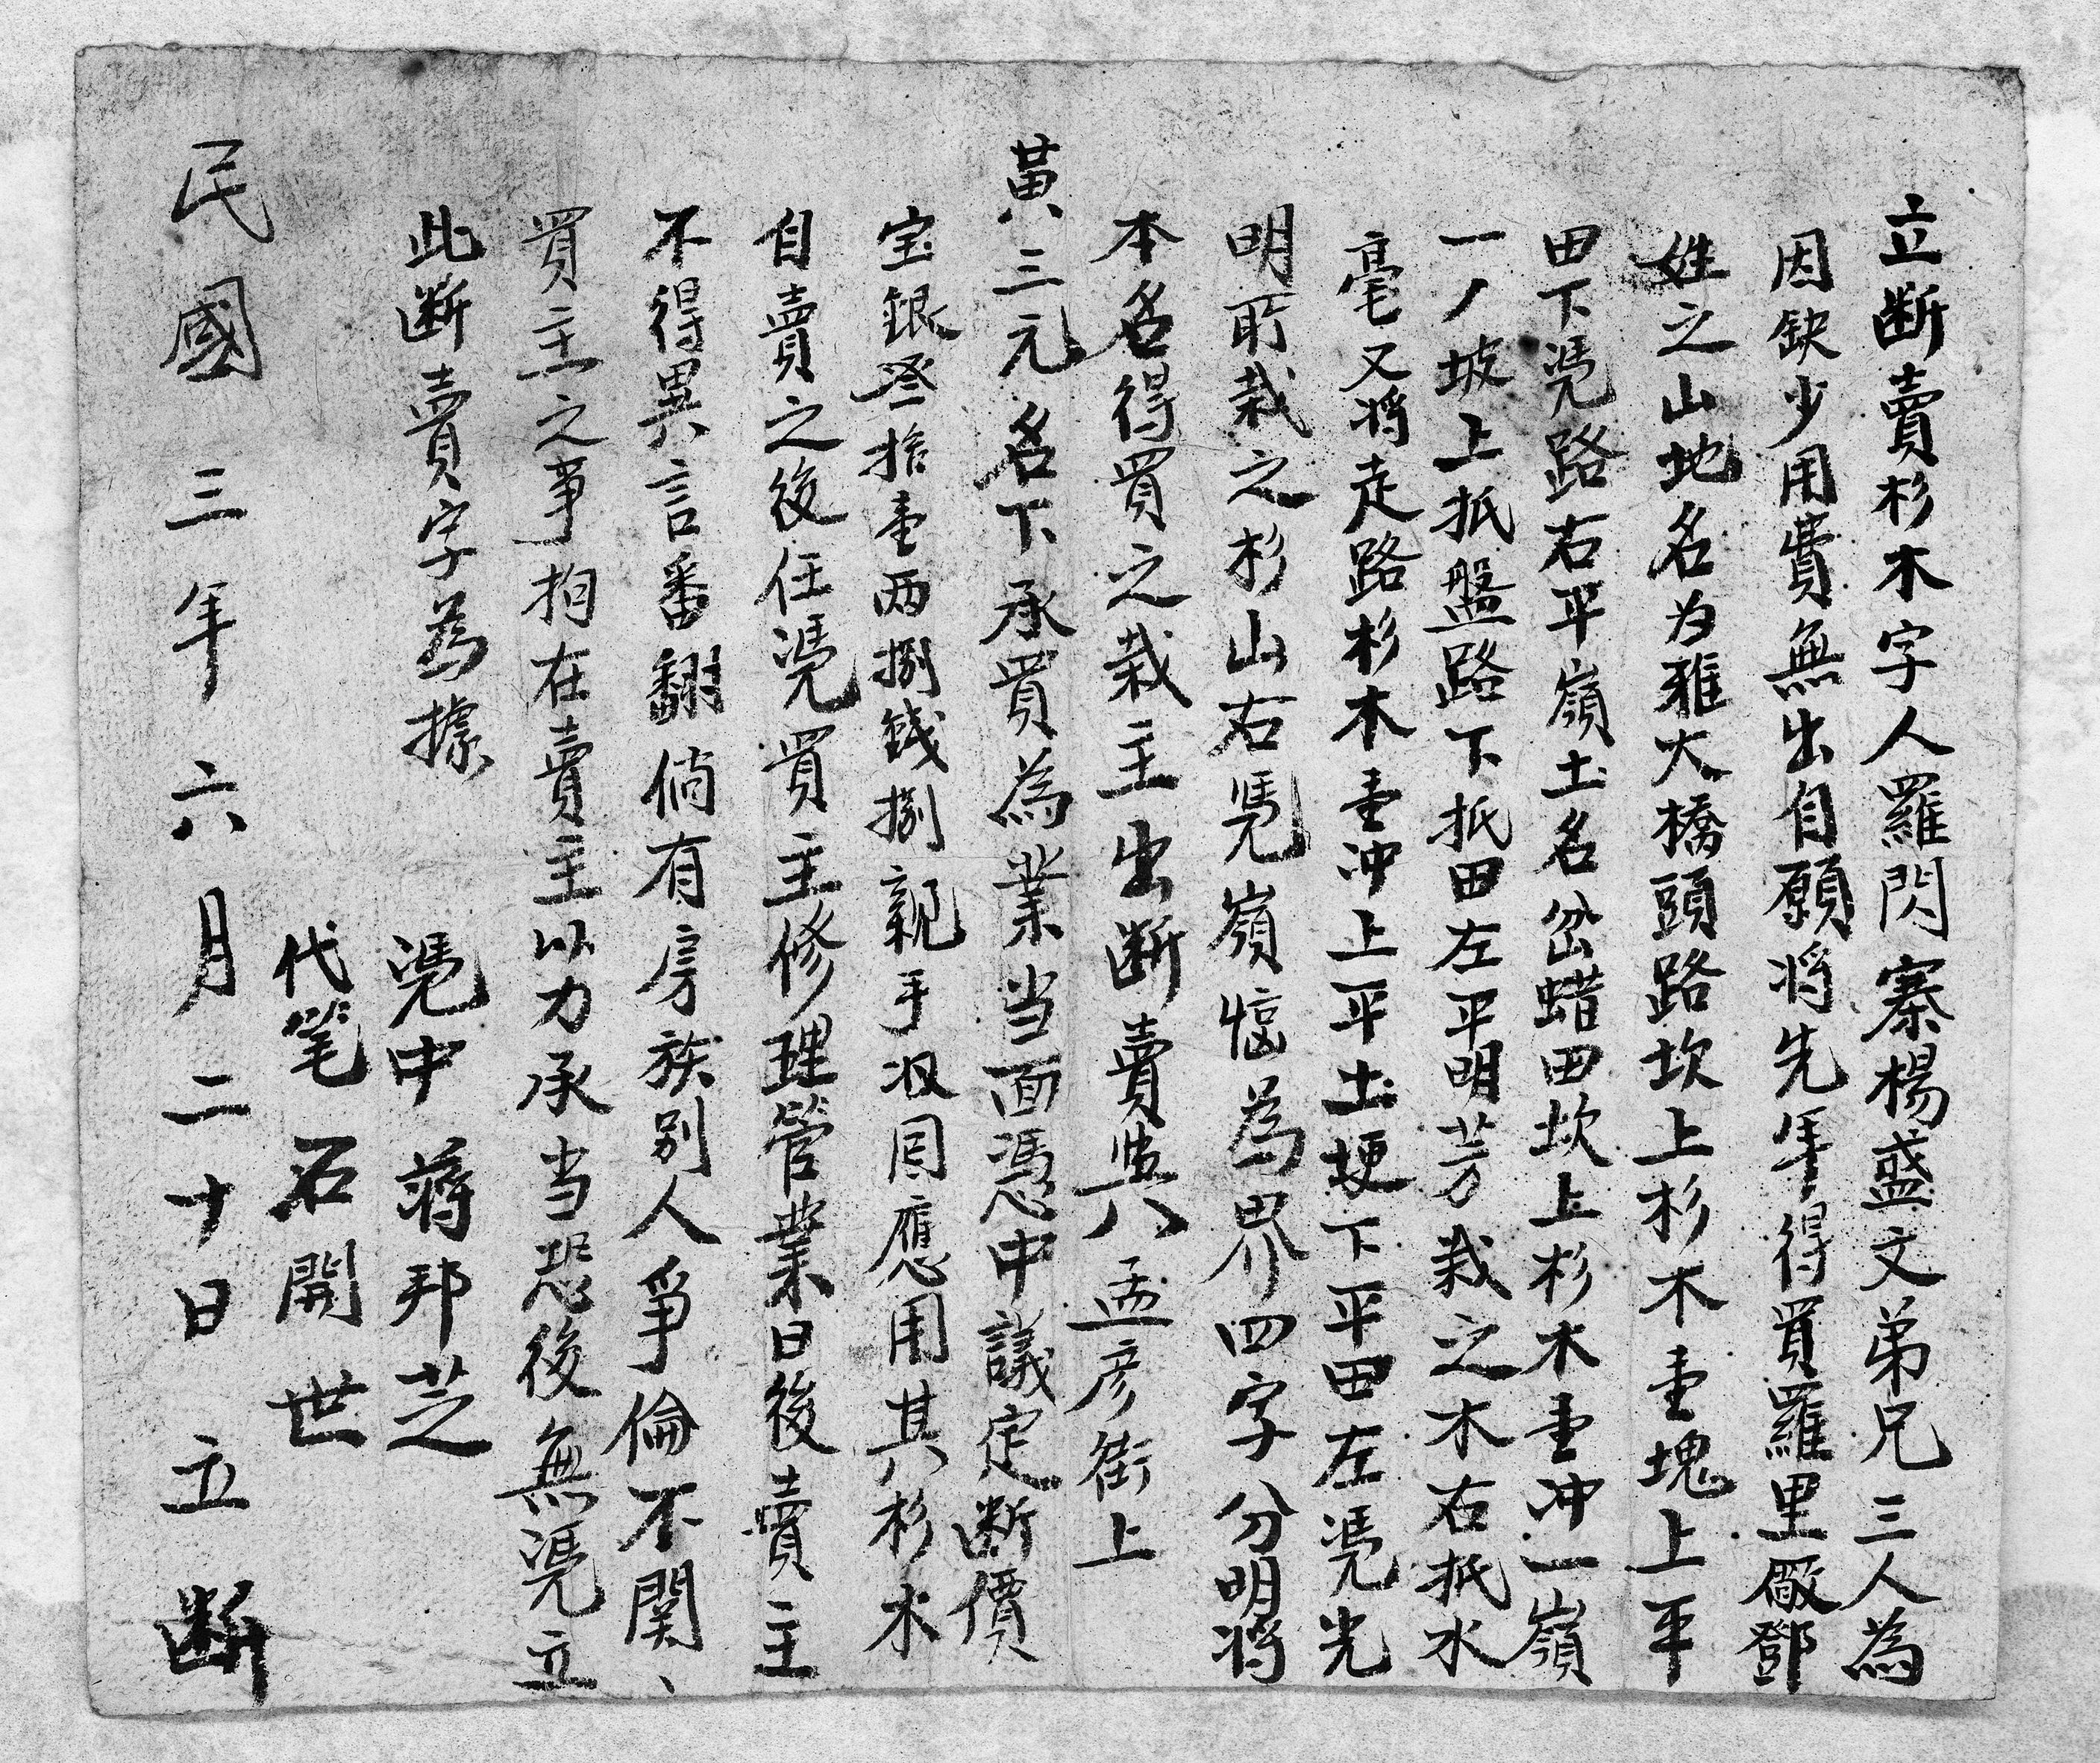 立断賣杉木字人羅閃寨楊盛文弟兄三人為
因缺少用費無出自願将先年得買羅里厰鄧
姓之山地名为雅大橋頭路坎上杉木壹塊上平
田下凴路右平嶺土名岔蜡田坎上杉木壹冲一嶺
一丿坡上抵盤路下抵田左平明芳栽之木右抵水
毫又将走路杉木壹冲上平土埂下平田左凴光
明所栽之杉山右凴嶺為界四字分明将
本名得買之栽主出断賣與孟彦街上
黄三元名下承買為業当面憑中議定断價
宝銀叁拾壹两捌錢捌親手收囘應用其杉木
自賣之後任凴買主修理管業日後賣主
不得異言番翻倘有房族别人爭倫不関、
買主之事拘在賣主以力承当恐後無凴立
此断賣字為據
凴中蔣邦芝
代笔石開世
民國三年六月二十日立断